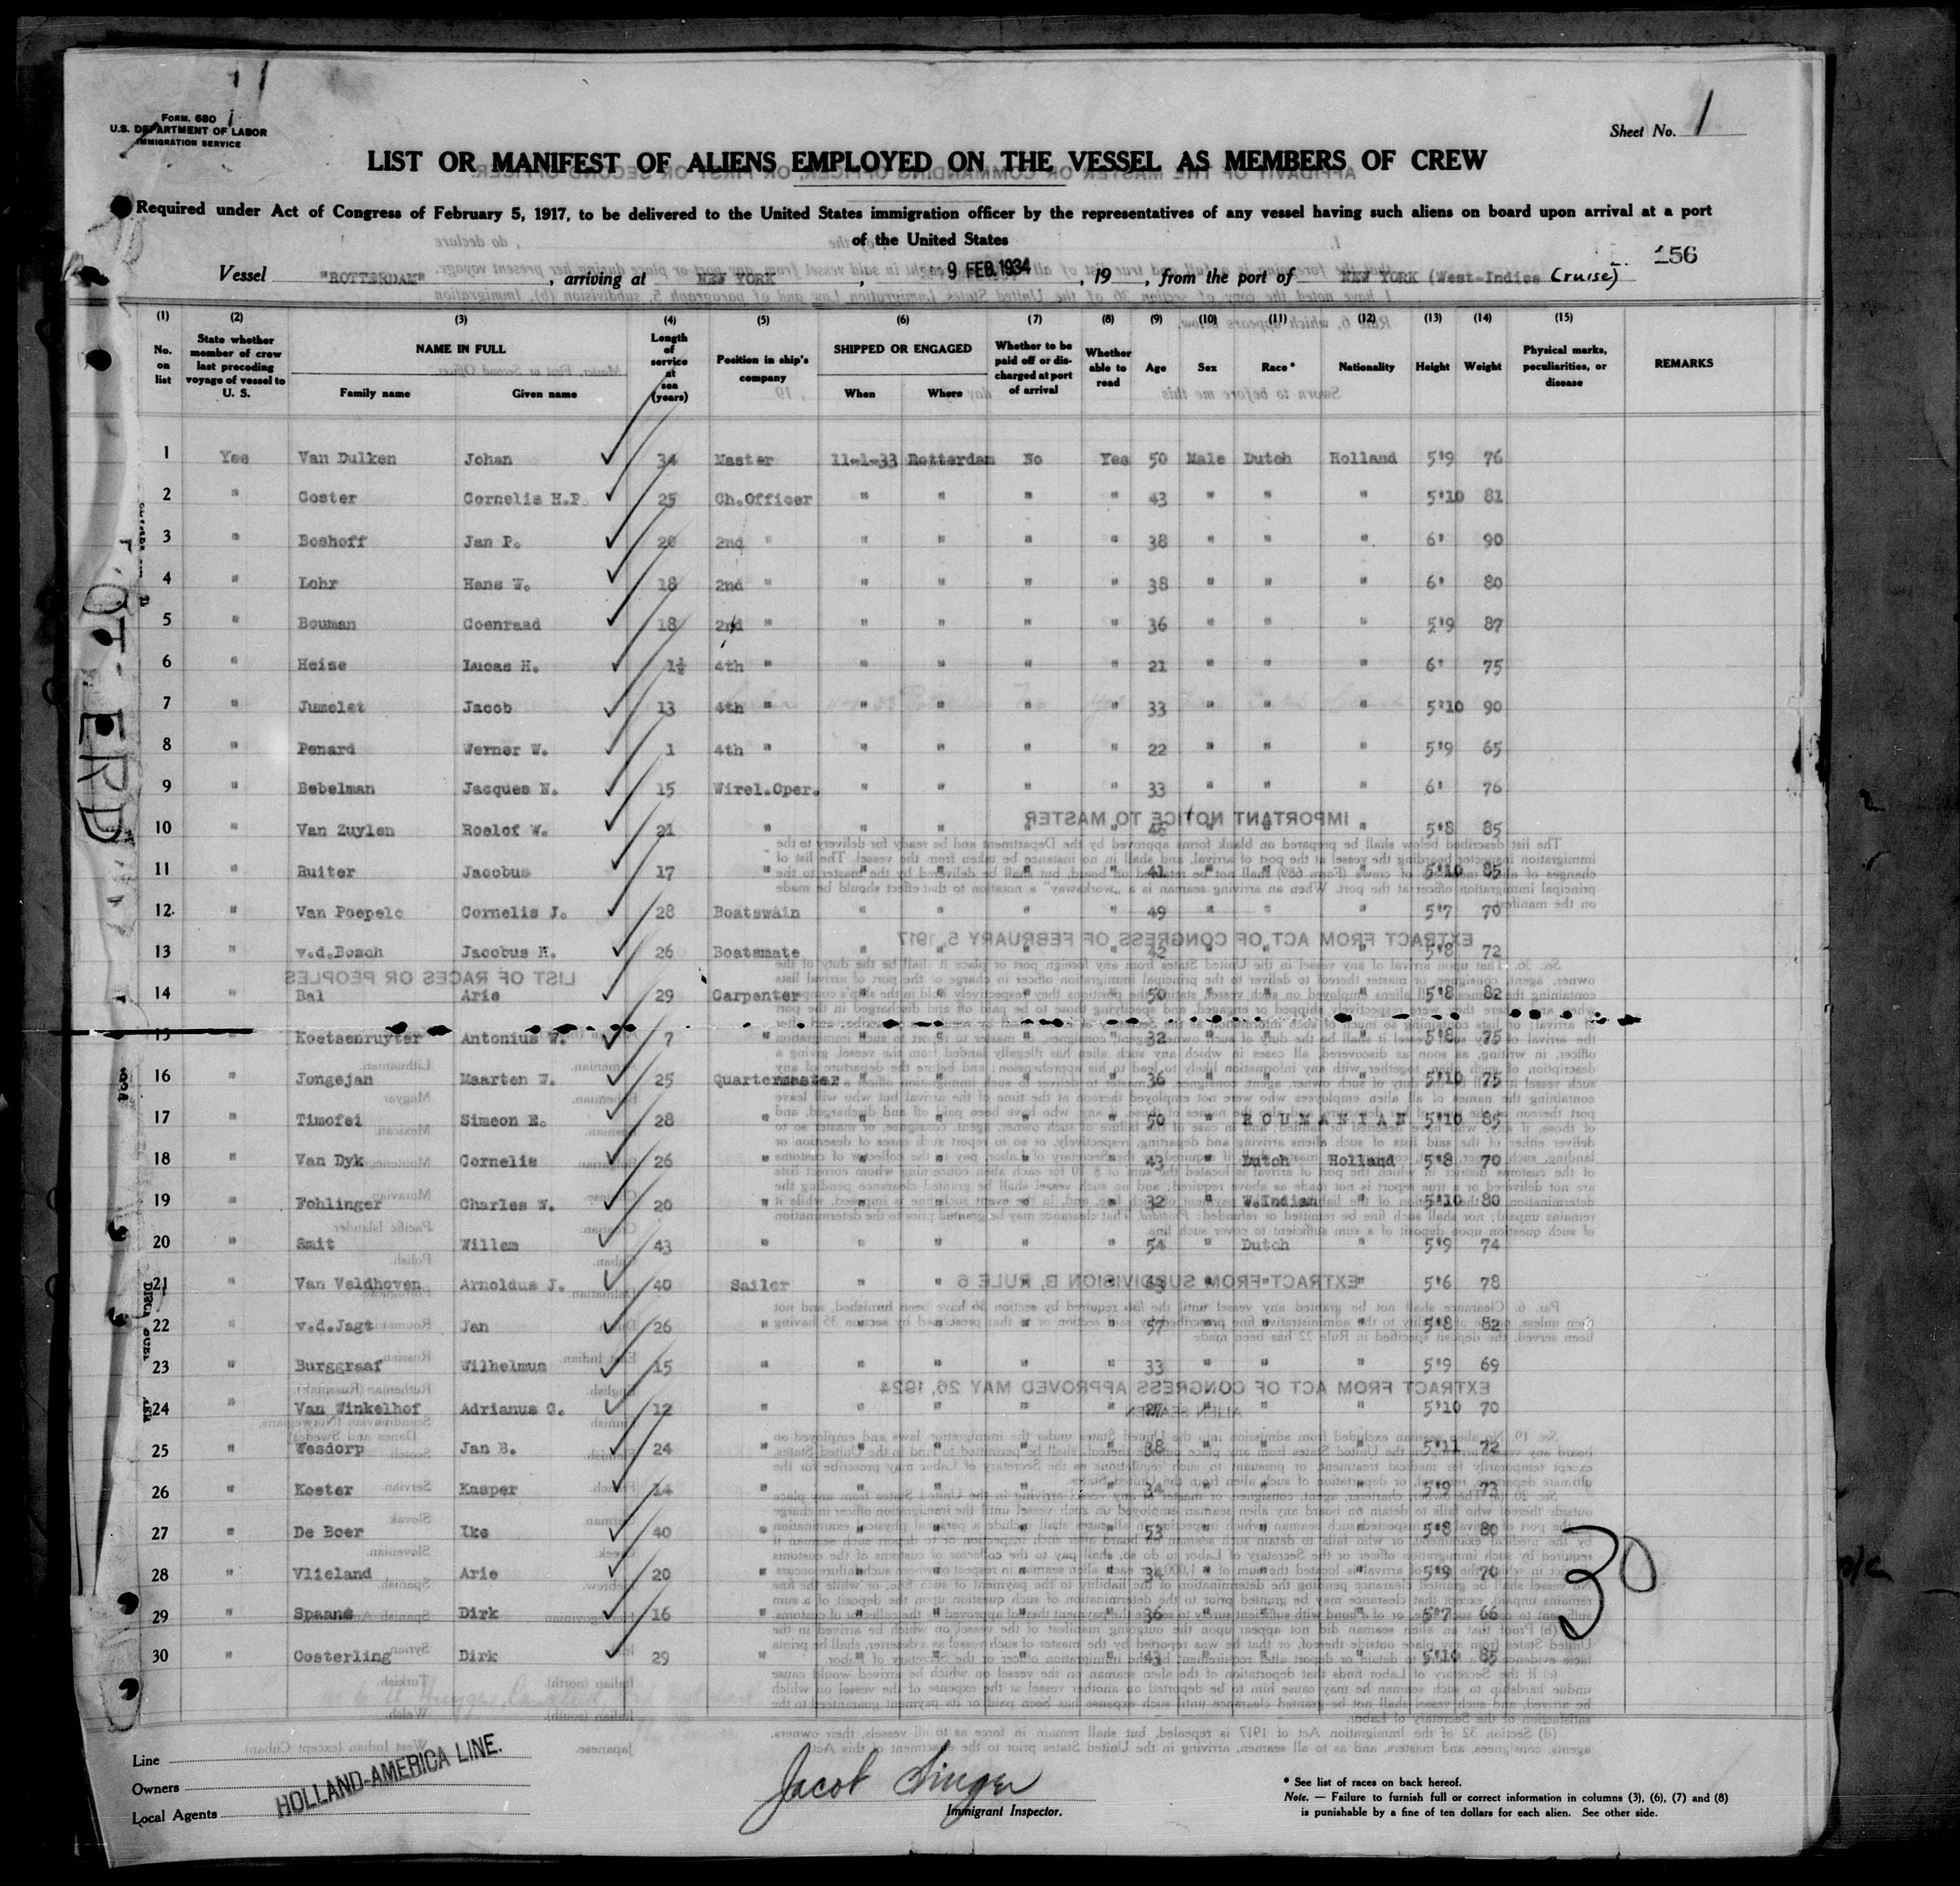 Form 680
U.S. DEPARTMENT OF LABOR
IMMIGRATION SERVICE
Sheet No. 1
LIST OR MANIFEST OF ALIENS EMPLOYED ON THE VESSEL AS MEMBERS OF CREW
Required under Act of Congress of February 5, 1917, to be delivered to the United States immigration officer by the representatives of any vessel having such aliens on board upon arrival at a port
of the United States
156
Vessel "ROTTERDAM", arriving at NEW YORK, 9 FEB. 1934, 19 , from the port of NEW YORK (West-Indies Cruise)
(1) (2) (3) (4) (5) (6) (7) (8) (9) (10) (11) (12) (13) (14) (15)
No. on list State whether member of crew last preceding voyage of vessel to U. S. NAME IN FULL Family name Given name Length of service at sea (years) Position in ship's company SHIPPED OR ENGAGED When Where Whether to be paid off or discharged at port of arrival Whether able to read Age Sex Race* Nationality Height Weight Physical marks, peculiarities, or disease REMARKS
1 Yes Van Dulken Johan 34 Master 11-1-33 Rotterdam No Yes 50 Male Dutch Holland 5'9 76
2 " Coster Cornelis H.P. 25 Ch.Officer " " " " 43 " " " 5'10 81
3 " Boshoff Jan P. 20 2nd " " " " " 38 " " " 6' 90
4 " Lohr Hans W. 18 2nd " " " " " 38 " " " 6' 80
5 " Bouman Coenraad 18 2nd " " " " " 36 " " " 5'9 87
6 " Heise Lucas H. 1½ 4th " " " " " 21 " " " 6' 75
7 " Jumelet Jacob 13 4th " " " " " 33 " " " 5'10 90
8 " Penard Werner W. 1 4th " " " " " 22 " " " 5'9 65
9 " Bebelman Jacques N. 15 Wirel.Oper. " " " " 33 " " " 6' 76
10 " Van Zuylen Roelof W. 21 " " " " " 46 " " " 5'8 85
11 " Ruiter Jacobus 17 " " " " " 41 " " " 5'10 85
12 " Van Poepele Cornelis J. 28 Boatswain " " " " 49 " " " 5'7 70
13 " v.d.Bosch Jacobus H. 26 Boatsmate " " " " 42 " " " 5'8 72
14 " Bal Arie 29 Carpenter " " " " 50 " " " 5'8 82
15 " Koetsenruyter Antonius W. 7 " " " " " 32 " " " 5'8 75
16 " Jongejan Maarten W. 25 Quartermaster " " " " 36 " " " 5'10 75
17 " Timofei Simeon E. 28 " " " " " 50 " ROUMANIAN 5'10 85
18 " Van Dyk Cornelis 26 " " " " " 43 " Dutch Holland 5'8 70
19 " Fohlinger Charles W. 20 " " " " " 32 " W.Indian " 5'10 80
20 " Smit Willem 43 " " " " " 54 " Dutch " 5'9 74
21 " Van Veldhoven Arnoldus J. 40 Sailor " " " " " " " 5'6 78
22 " v.d.Jagt Jan 26 " " " " " 57 " " " 5'8 82
23 " Burggraaf Wilhelmus 15 " " " " " 33 " " " 5'9 69
24 " Van Winkelhof Adrianus C. 12 " " " " " " " " 5'10 70
25 " Wesdorp Jan B. 24 " " " " " 38 " " " 5'11 72
26 " Koster Kasper 14 " " " " " 34 " " " 5'9 73
27 " De Boer Ike 40 " " " " " 53 " " " 5'8 80
28 " Vlieland Arie 20 " " " " " 34 " " " 5'9 70
29 " Spaans Dirk 16 " " " " " 36 " " " 5'7 66
30 " Oosterling Dirk 29 " " " " " 43 " " " 5'10 85
30
Line
Owners
Local Agents
HOLLAND-AMERICA LINE.
Jacob Singer
Immigrant Inspector.
* See list of races on back hereof.
Note. — Failure to furnish full or correct information in columns (3), (6), (7) and (8)
is punishable by a fine of ten dollars for each alien. See other side.